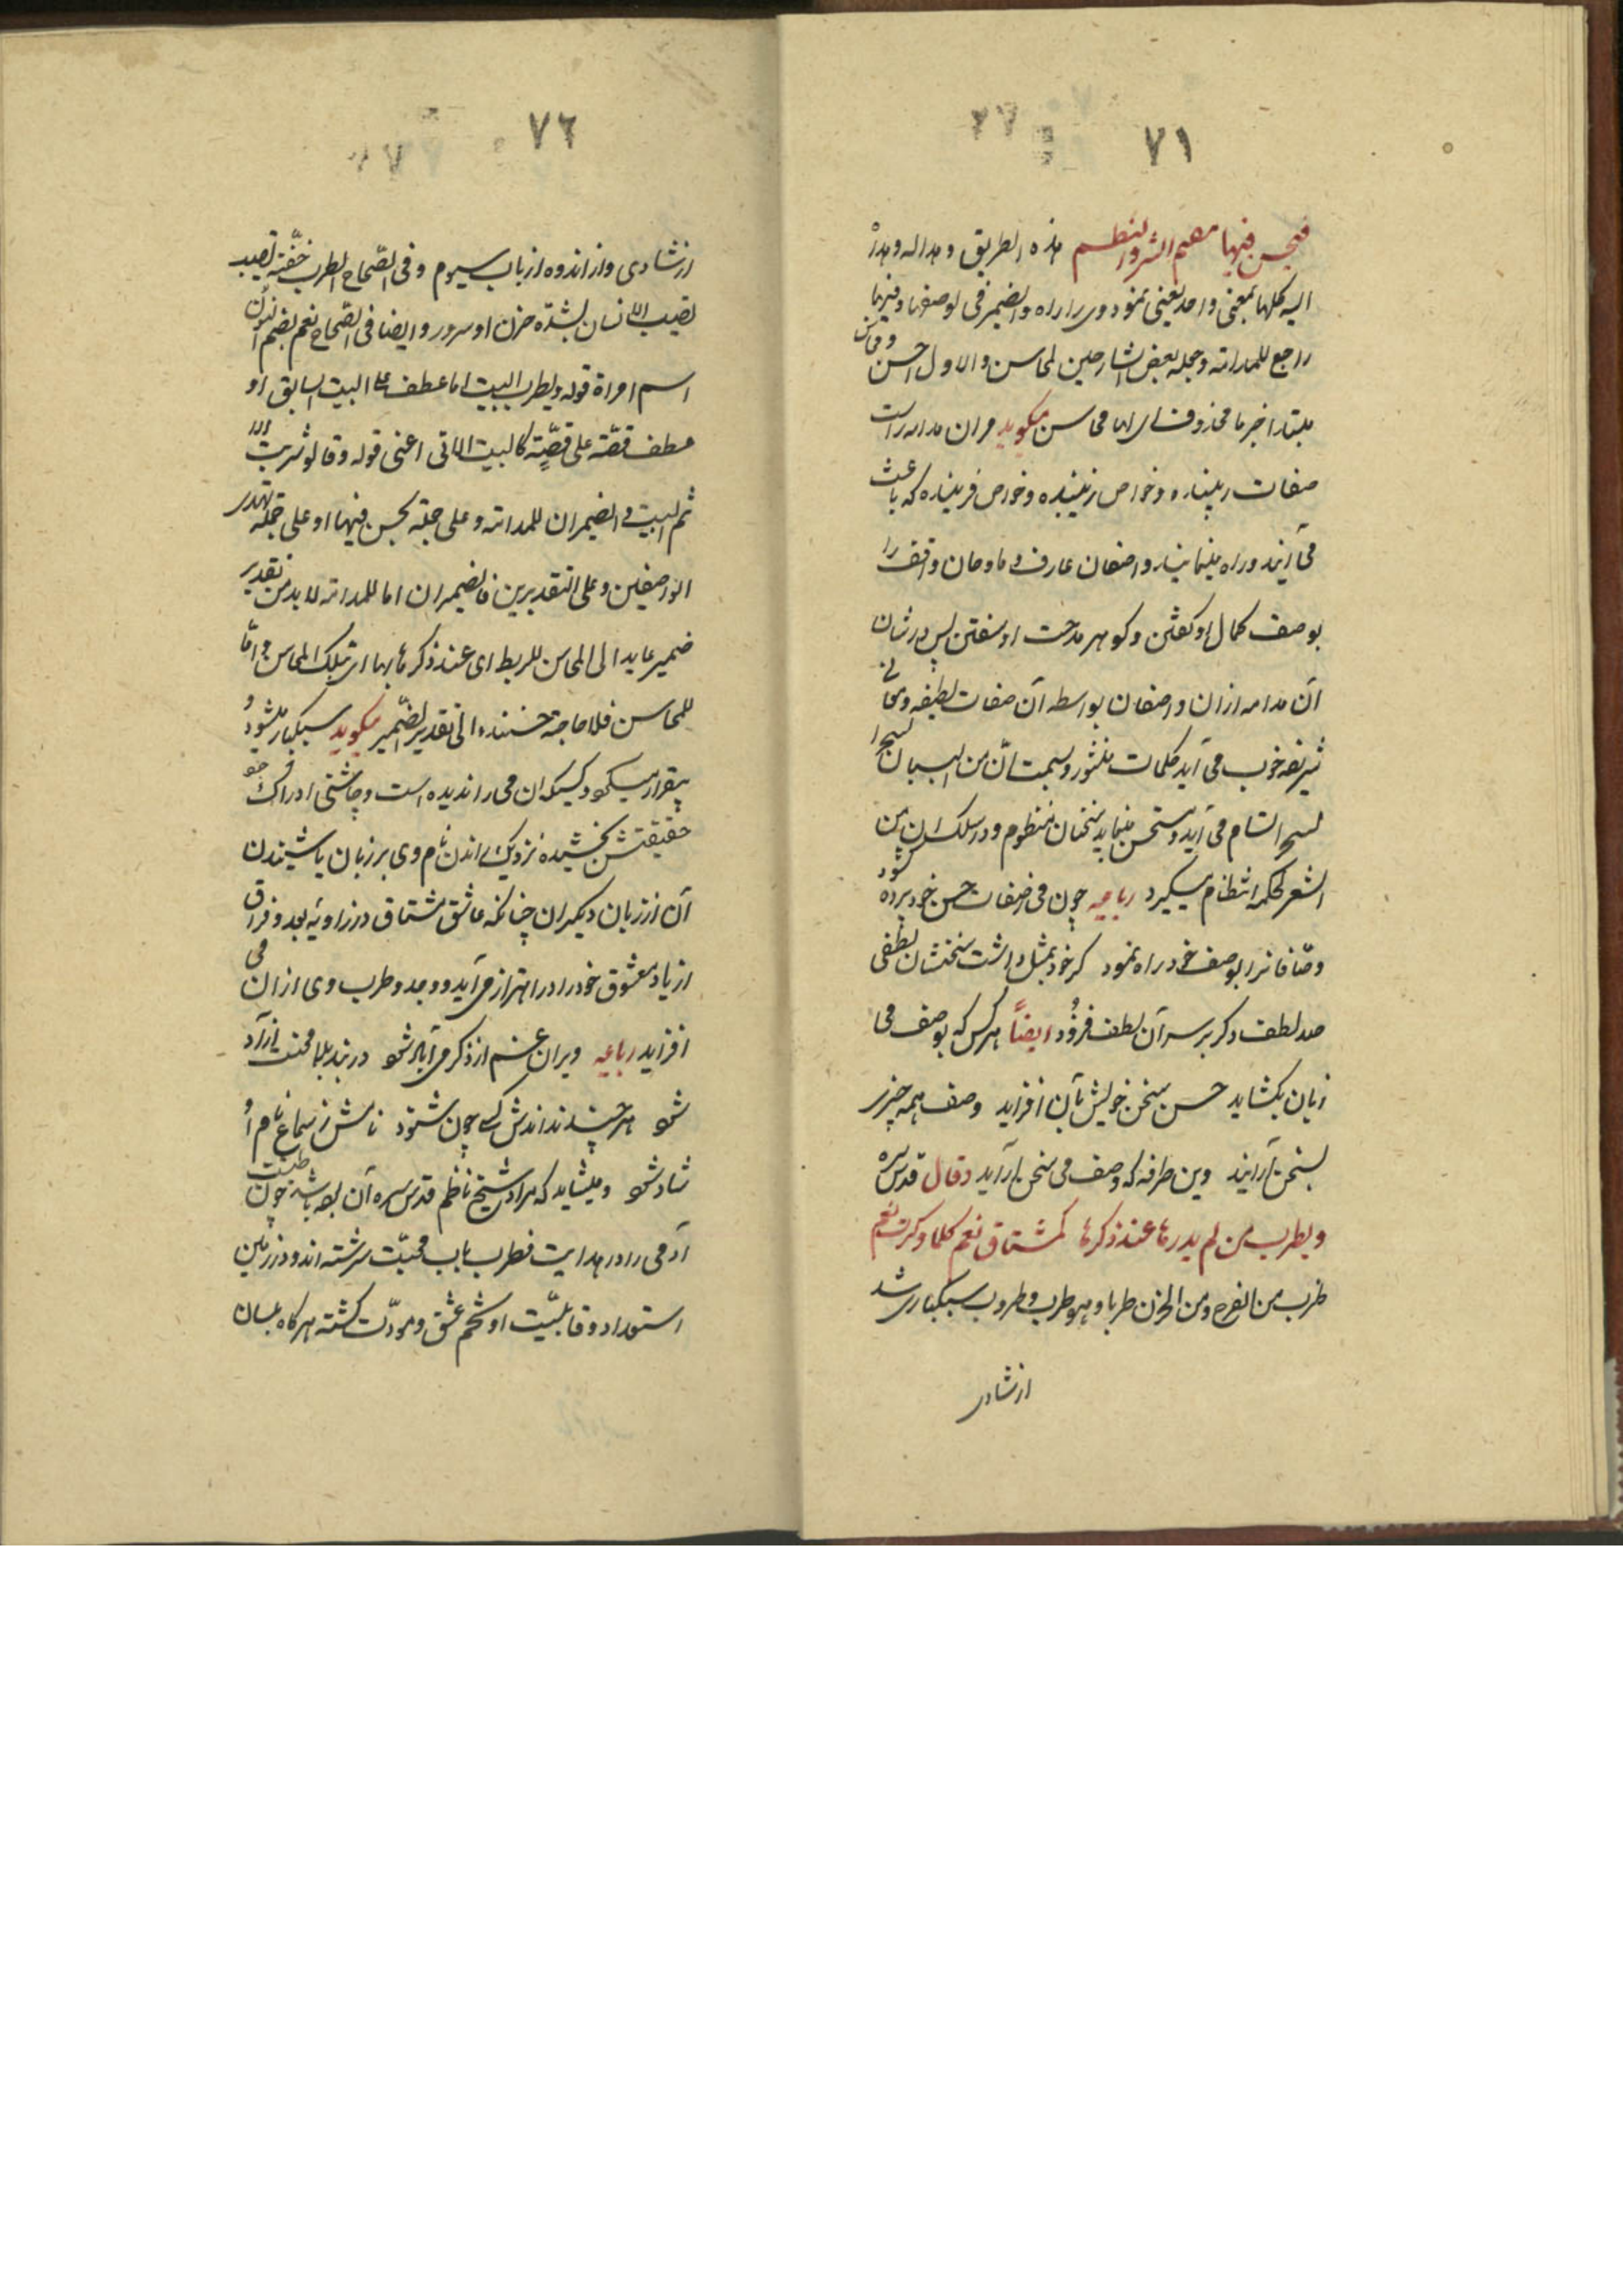 ٧١
فیحسن فیها منهم النثر والنظم هذه الطریق وهداله وهداه
الیه کلها بمعنی واحد یعنی نمود وی را راه والضمیر فی لوصفها وفیها
راجع للمدامة وجعله بعض الشارحین لمحاسن والاول احسن ومحاسن
مبتدا خبرها محذوف ای لها محاسن میکوید مران مدامه راست
صفات زیبنده وخواص فریبنده که باعث
می آیند و راه مینمایند واصفان عارف و مادحان واقف را
بوصف کمال او کفتن وکوهر مدحت او سفتن پس در شان
آن مدامه ازان واصفان بواسطه آن صفات لطیفه ومعانی
شریفه خوب می آید کلمات منثور وبسمت ان من البیان لسحرا
اتسام می آید ومستحسن مینماید سخنان منظوم ودر سلک ان من
الشعر لحکمة انتظام میکیرد رباعیه چون می ز صفات حسن خود پرده کشود
وصافانرا بوصف خود راه نمود کر خود بمثل داشت سخنشان لطفی
صد لطف دکر بر سر آن لطف فزود ایضاً هر کس که بوصف می
زبان بکشاید حسن سخن خویش بآن افزاید وصف همه چیز
بسخن آرایند وین طرفه که وصف می سخن آراید وقال قدس سره
ویطرب من لم یدرها عند ذکرها کمشتاق نعم کلما ذکرت نعم
طرب من الفرح ومن الحزن طربا وهو طرب وطروب سبکبار شد
ازشادی
٧٢
ازشادی واز اندوه از باب سیوم وفی الصحاح الطرب خفة تصیب
الانسان لشدة حزن او سرور وایضا فی الصحاح نعم بضم النون
اسم امراة قوله ویطرب البیت اما عطف علی البیت السابق او
عطف قصة علی قصة کالبیت الآتی اعنی قوله وقالوا شربت الاثم
البیت والضمیران للمدامة وعلی جملة یحسن فیها او علی جملة تهدی
الواصفین وعلی التقدیرین فالضمیران اما للمدامة لابد من تقدیر
ضمیر عاید الی المحاسن للربط ای عند ذکرها بها ای بتلک المحاسن واما
للمحاسن فلا حاجة حینئذ الی تقدیر الضمیر میکوید سبکبار میشود و
بیقرار میکردد کسیکه ان می را ندیده است وچاشنی ادراک
حقیقتش نچشیده نزدیک راندن نام وی بر زبان یا شنیدن
آن از زبان دیکران چنانکه عاشق مشتاق در زاویه بعد و فراق
از یاد معشوق خود را در اهتزاز می آید ووجد وطرب وی ازان می
افزاید رباعیه ویران غم از ذکر می آباد شود در بند بلا محنت آزاد
شود هر چند نداندش کسی چون شنود نامش ز سماع نام او
شاد شود ومیشاید که مراد شیخ ناظم قدس سره آن بوده باشد چون طینت
آدمی را در بدایت فطرت بآب محبت سرشته اند ودر زمین
استعداد وقابلیت او تخم عشق ومودت کشته هرکاه بلسان